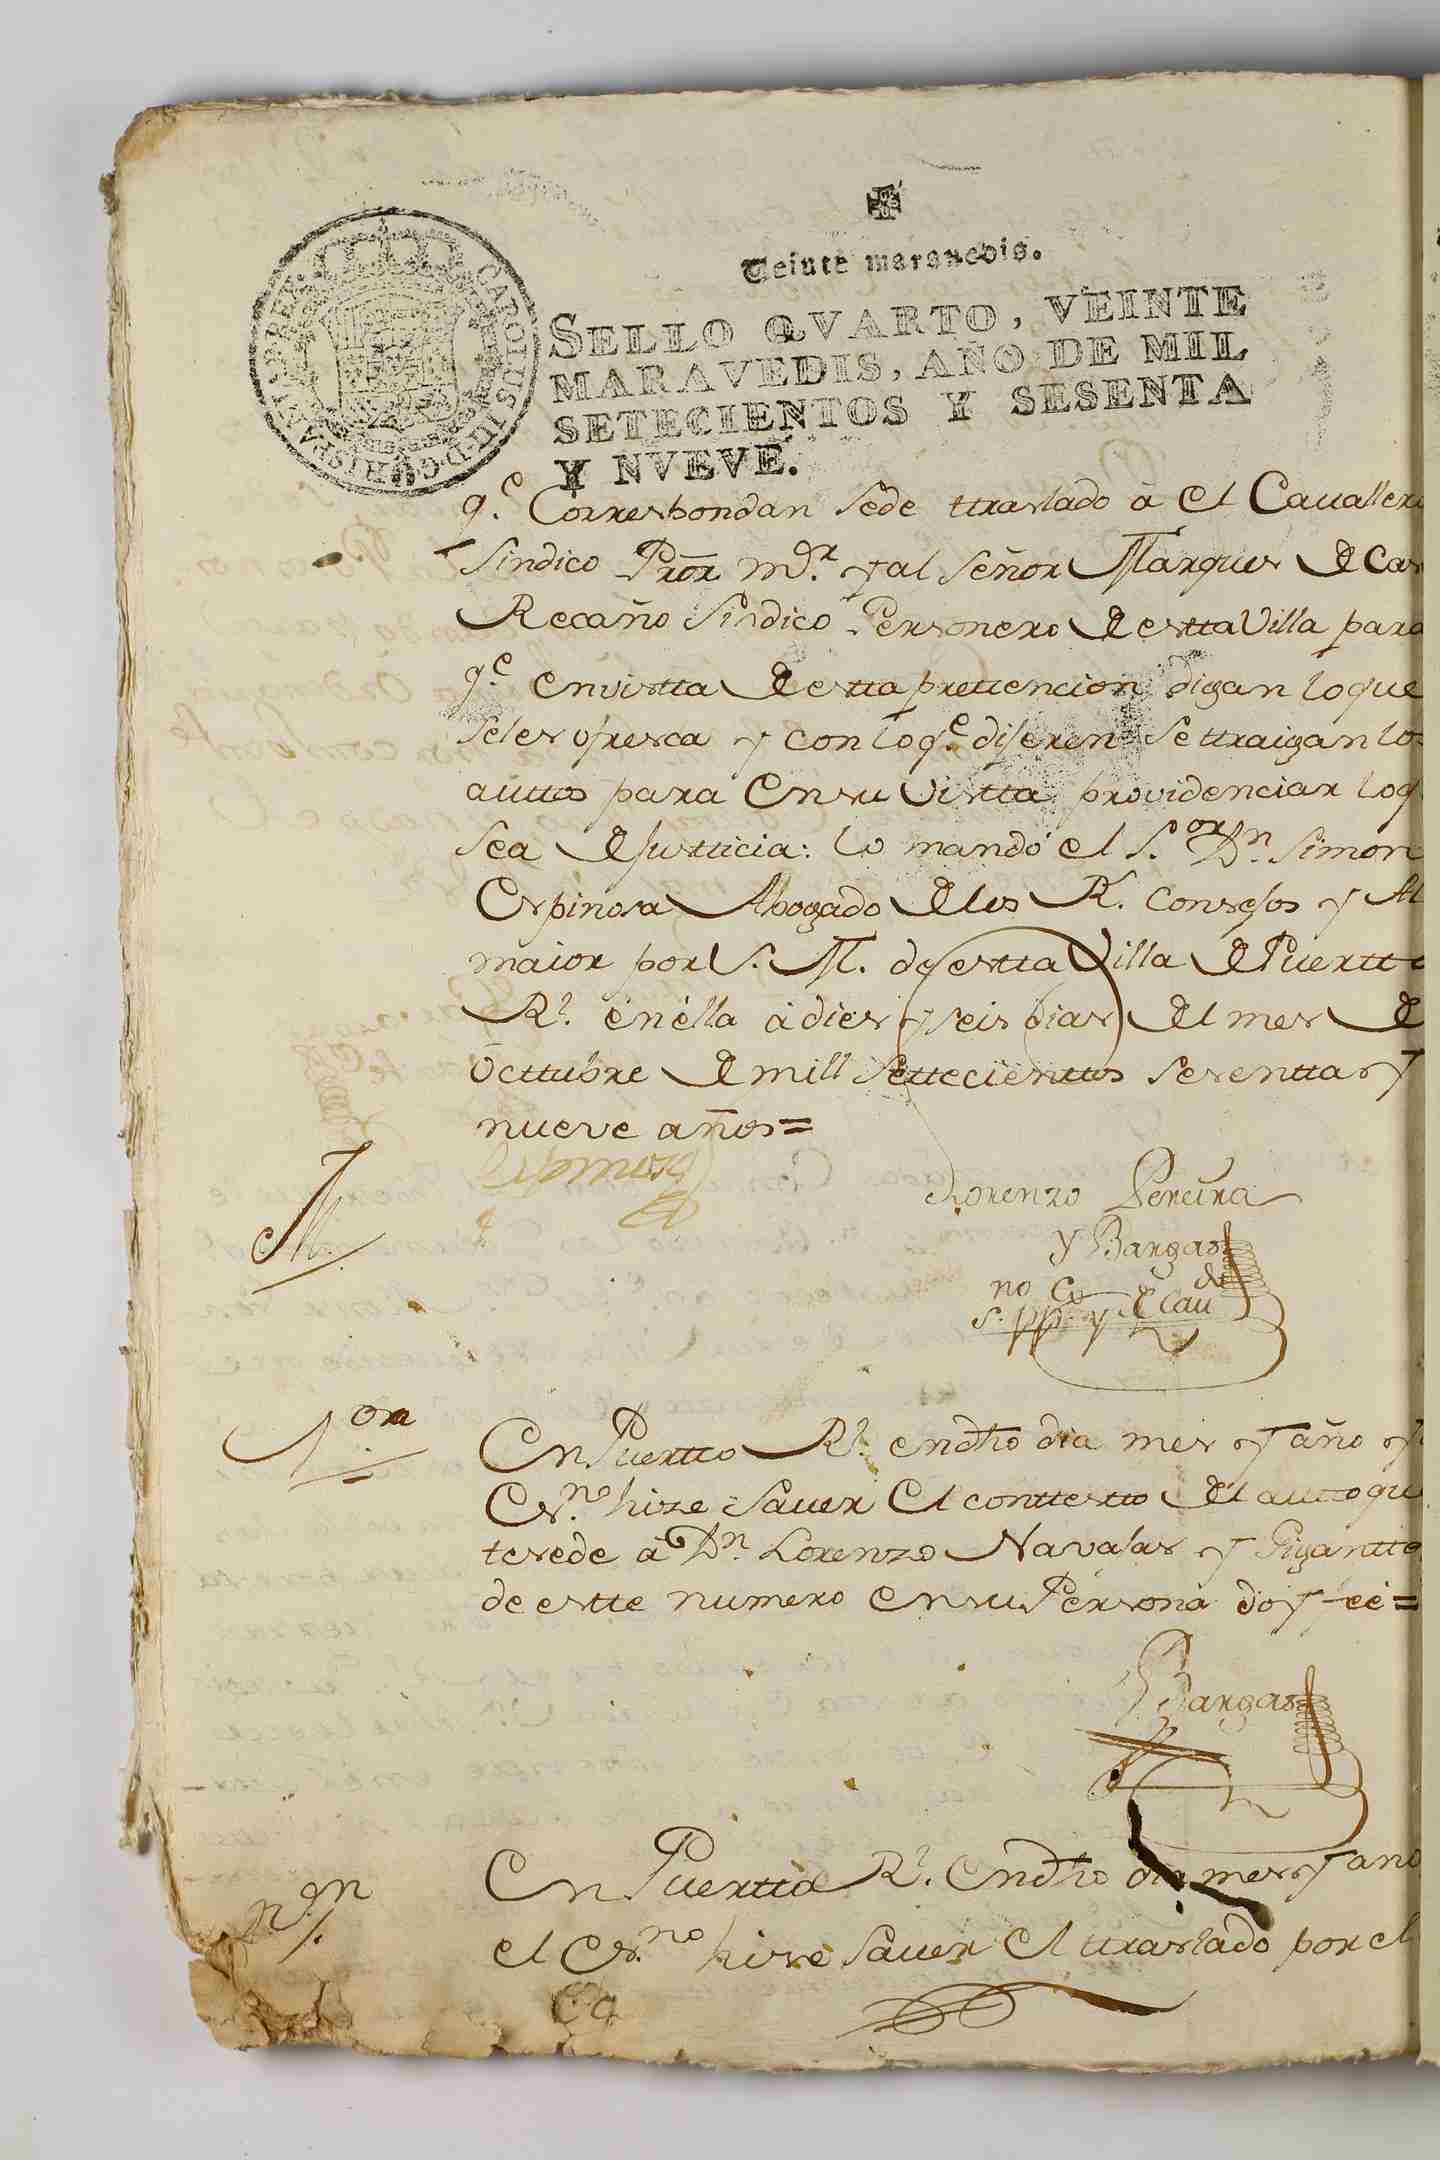 CAROLUS III D G HISPANIAR REX
Veinte maravedis.
SELLO QVARTO, VEINTE
MARAVEDIS, AÑO DE MIL
SETECIENTOS Y SESENTA
Y NVEVE.
q.e Correspondan sede ttraslado à el Cauallero
Sindico Pror m.or y al Señor Marques de Cas
Recaño Sindico Personero de estta Villa para
q.e en vistta de estta prettencion digan lo que
seles ofresca y con lo q.e dijeren se ttraigan los
auttos para en su Vistta providenciar loq
sea de Justticia: lo mandó el S.or Dn. Simon
Espinosa Abogado de los R. Consejos y Al
maior por S. M. de estta Villa de Puertto
Rl. en èlla à dies y seis dias del mes de
Octtubre de mill settecienttos sesentta y
nueve años=
Espinosa
Lorenzo Pereira
y Bargas
no Cu de
s. pp. y Cau
M.
N.on
En Puertto Rl. en dho dia mes y año y
Es.no hize sauer el conttestto del autto qu
tesede à Dn. Lorenzo Navajas y Gigantte
de estte numero en su Persona doy fee=
Bargas
N.on
En Puertto Rl. en dho dia mes y año
el Es.no hise sauer el ttraslado por el
Ca